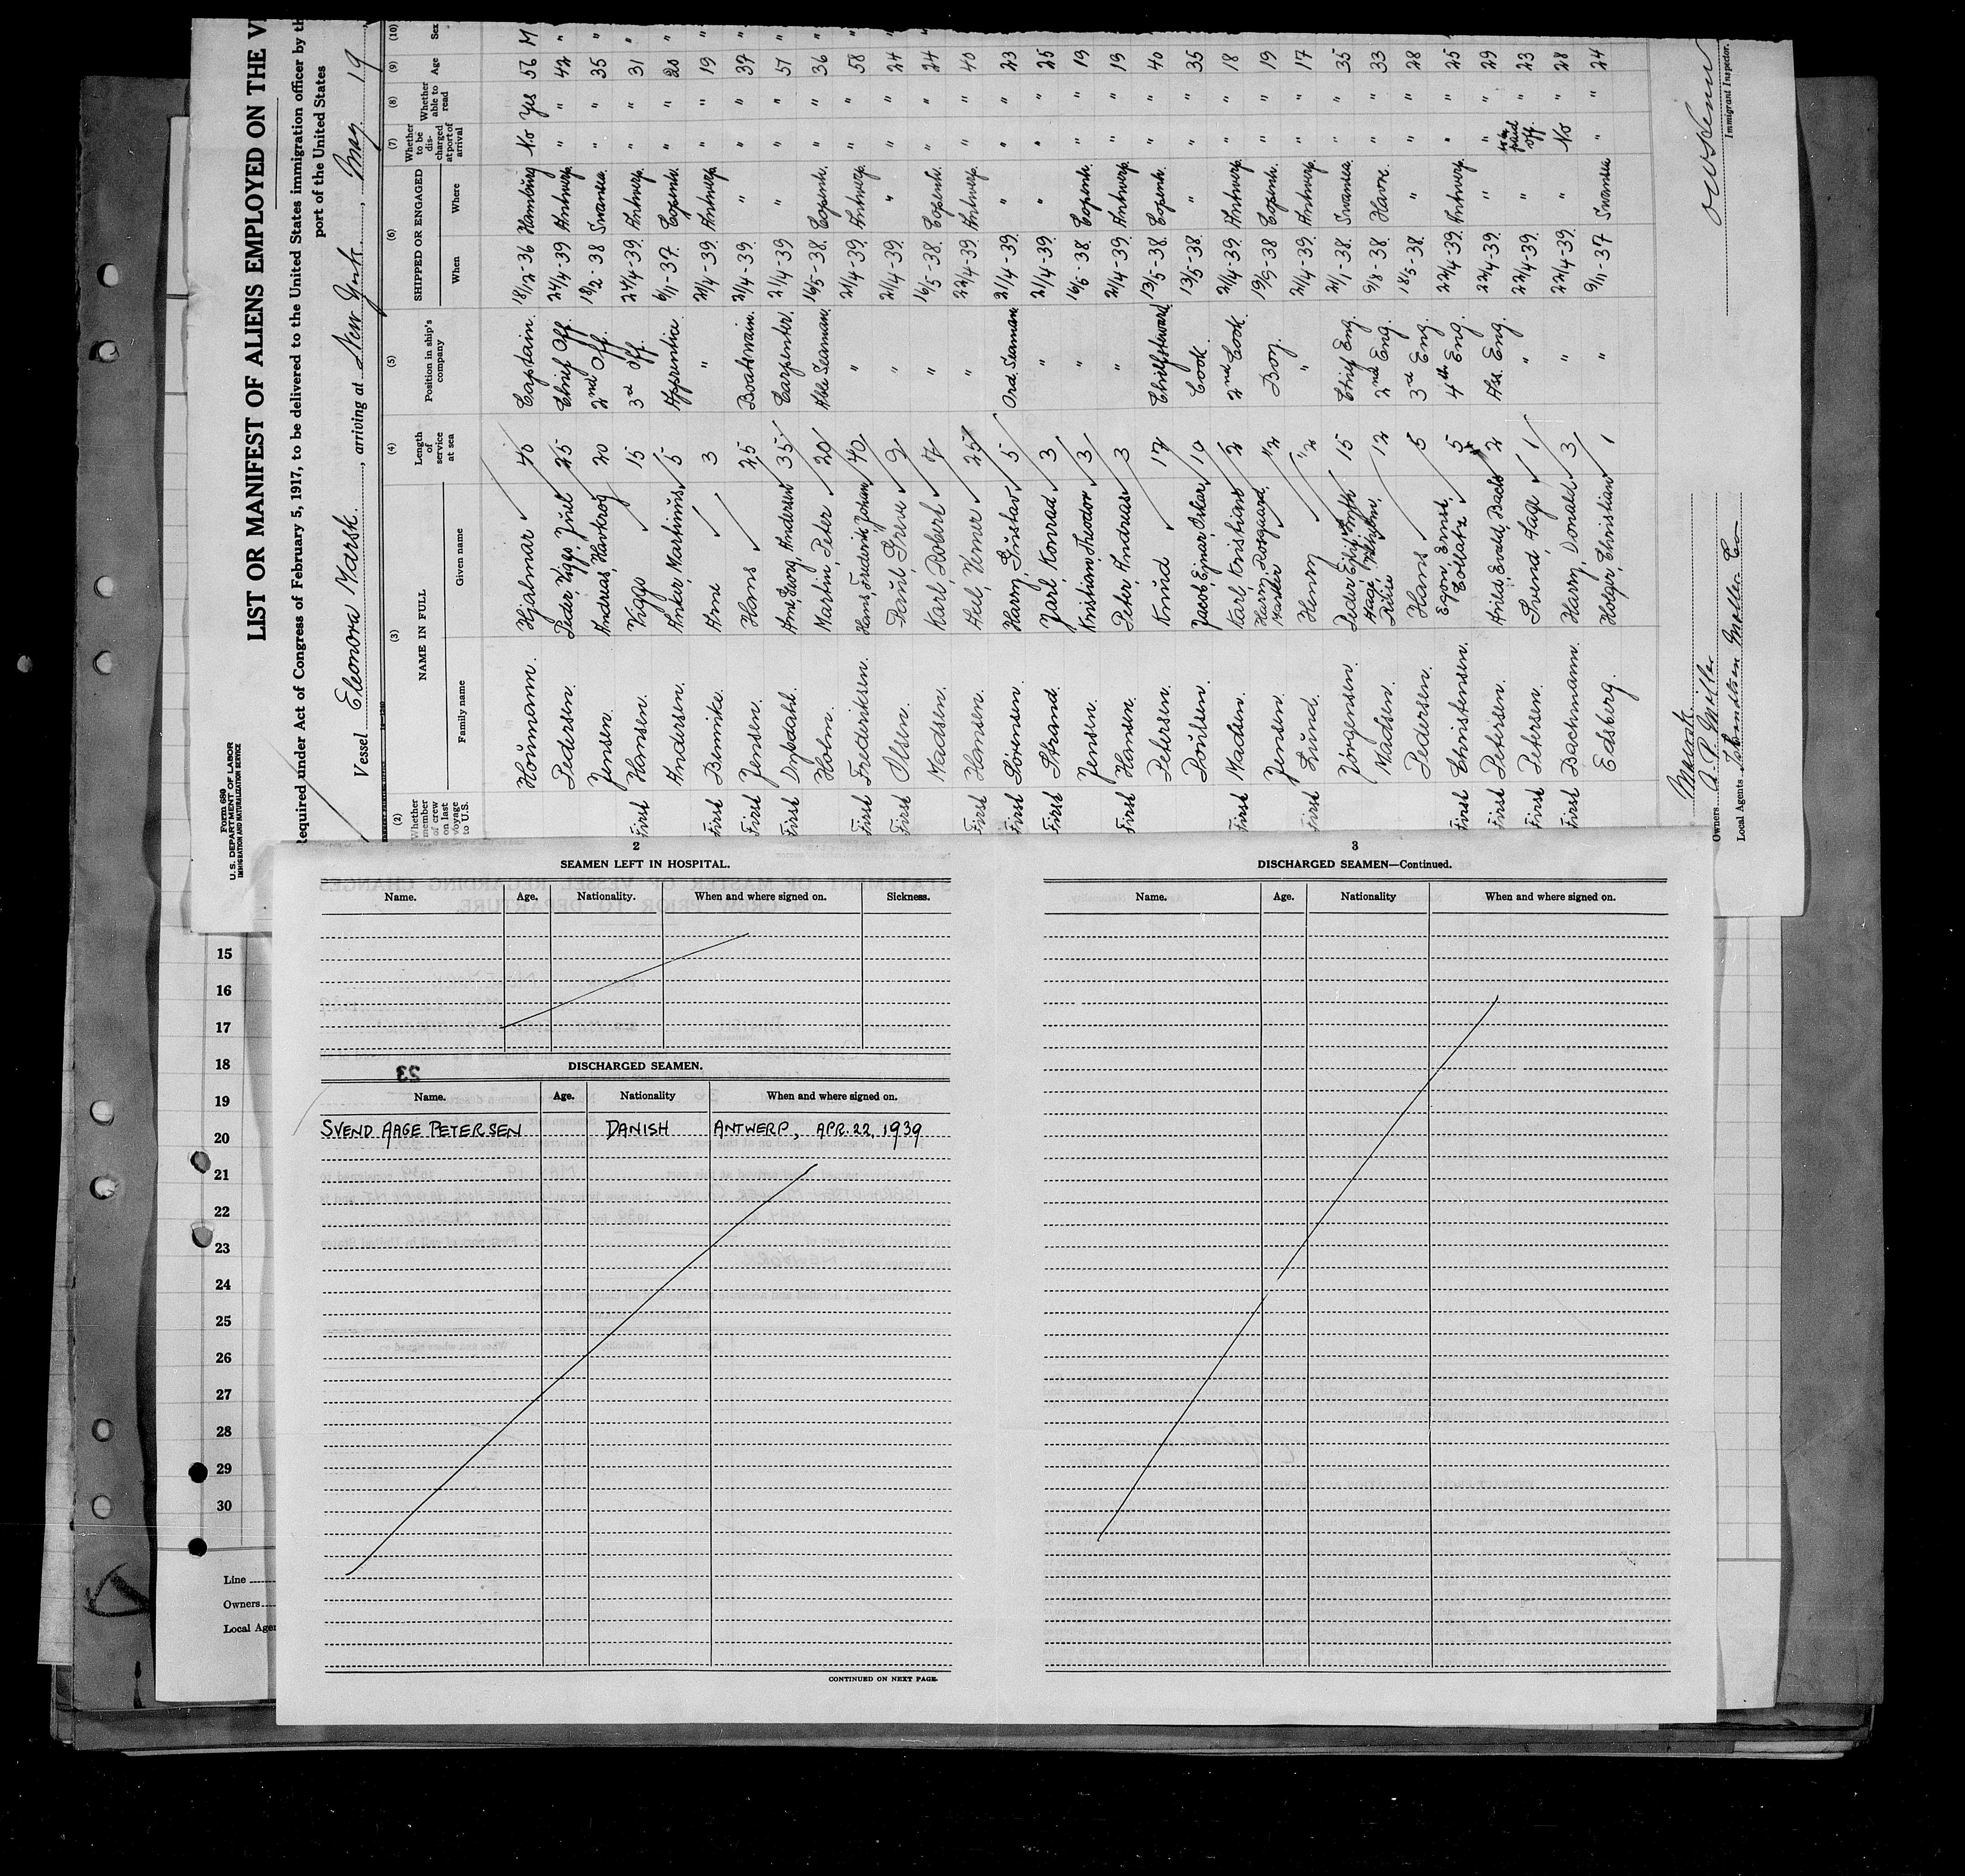 Form 680
U.S. DEPARTMENT OF LABOR
IMMIGRATION AND NATURALIZATION SERVICE
LIST OR MANIFEST OF ALIENS EMPLOYED ON THE
Required under Act of Congress of February 5, 1917, to be delivered to the United States immigration officer by th
port of the United States
Vessel Eleonora Mærsk., arriving at New York., May. 19
(2) (3) (4) (5) (6) (7) (8) (9) (10)
Whether member of crew on last voyage to U.S. NAME IN FULL Length of service at sea Position in ship's company SHIPPED OR ENGAGED Whether to be discharged at port of arrival Whether able to read Age Sex
Family name Given name When Where
Hounmann. Hjalmar 40 Captain. 18/12-36 Hamburg No Yes 56 M
Pedersen. Peder, Viggo, Juel 25 Chief Off. 24/4-39 Antwerp. " " 42 "
Jensen. Andreas, Havkrog 20 2nd Off. 18/2-38 Swansea. " " 35 "
First Hansen. Viggo 15 3rd Off. 24/4-39. Antwerp. " " 31 "
Andersen. Anker, Martinus 5 Apprentice. 6/1-37. Copenh. " " 20 "
First Bennike. Arne 3 " 21/4-39. Antwerp. " " 19 "
First Jensen. Hans 25 Boatswain. 21/4-39. " " " 37 "
First Dyrdahl. Arne, Georg, Andersen 35 Carpenter. 21/4-39 " " " 57 "
Holm. Martin, Peter 20 Able Seaman. 16/5-38. Copenh. " " 36 "
First Frederiksen. Hans, Frederik, Johan 40 " 21/4-39. Antwerp. " " 58 "
First Olsen. Daul, Greve 9 " 21/4-39. " " " 24 "
Madsen. Karl, Robert 7 " 16/5-38. Copenh. " " 24 "
First Hansen. Axel, Umer 25 " 22/4-39 Antwerp. " " 40 "
First Sörensen. Harry, Gustav 5 Ord. Seaman 21/4-39. " " " 23
First Strand. Jarl, Konrad 3 " 21/4-39. " " " 25
Jensen. Kristian, Thodor 3 " 16/6-38. Copenh. " " 19
First Hansen. Peter, Andreas 3 " 21/4-39. Antwerp. " " 19
Petersen. Knud 17 Chiefsteward. 13/5-38. Copenh. " " 40
Poulsen. Jacob, Ejnar, Oskar 19 Cook. 13/5-38. " " " 35
First Madsen. Karl, Kristian 2 2nd Cook. 21/4-39. Antwerp. " " 18
Jensen. Harry, Rosgaard, 1/2 Boy. 19/9-38 Copenh. " " 19
First Lund. Henry 1/2 " 21/4-39. Antwerp. " " 17
Jörgensen. Peder 15 Chief Eng. 21/1-38. Swansea. " " 35
Madsen. Aage, 12 2nd Eng. 9/8-38. Havre. " " 33
Pedersen. Hans 5 3rd Eng. 18/5-38. " " " 28
First Christensen. Egon, Ernst, 5 4th Eng. 22/4-39. Antwerp. " " 25
First Petersen. Arild, Evald, Bach 2 Ass. Eng. 22/4-39. " " " 29
First Petersen. Svend, Aage 1 " 22/4-39. " to be paid off. " 23
First Bachmann. Harry, Donald 3 " 22/4-39. " No " 28
Edsberg. Holger, Christian 1 " 9/11-37 Swansea " " 24
Maersk.
Owners A. P. Möller
Local Agents Möller Co
Immigrant Inspector.
2
SEAMEN LEFT IN HOSPITAL.
Name. Age. Nationality. When and where signed on. Sickness.
23
DISCHARGED SEAMEN.
Name. Age. Nationality When and where signed on.
SVEND AAGE PETERSEN DANISH ANTWERP, APR. 22, 1939
CONTINUED ON NEXT PAGE.
3
DISCHARGED SEAMEN—Continued.
Name. Age. Nationality When and where signed on.
15
16
17
18
19
20
21
22
23
24
25
26
27
28
29
30
Line
Owners
Local Agen